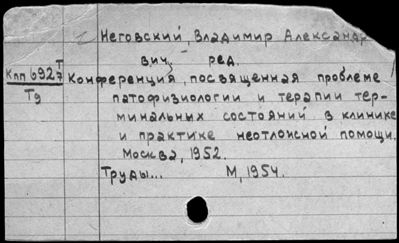 Неговский, Владимир Александр
вич, ред.
Кпп 6927 Т
Тд
Конференция, посвященная проблеме
патофизиологии и терапии тер-
минальных состояний в клинике
и практике неотложной помощи.
Москва, 1952.
Труды... М, 1954.